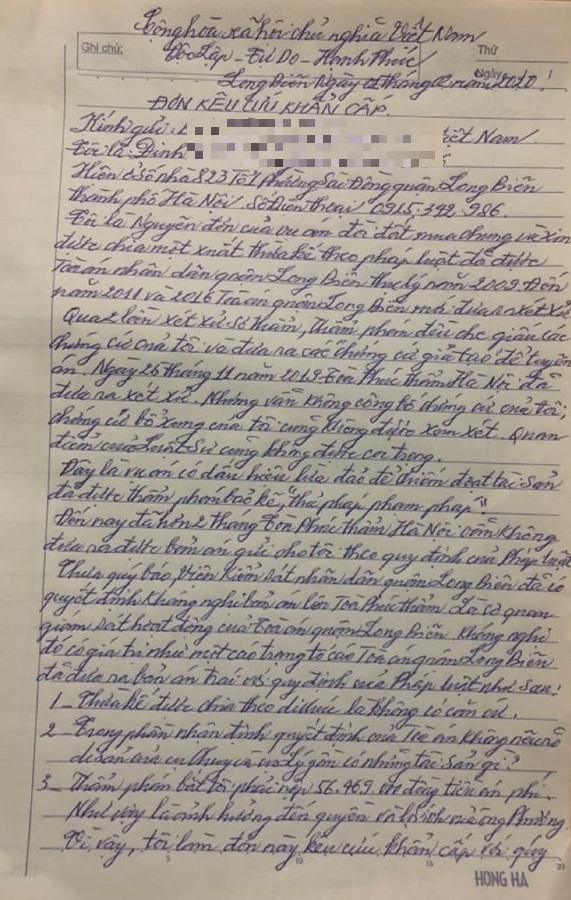 Cộng hòa xã hội chủ nghĩa Việt Nam
Ghi chú: Thứ
Độc Lập - Tự Do - Hạnh Phúc
Ngày
Long Biên Ngày tháng năm 2020
ĐƠN KÊU CỨU KHẨN CẤP.
Kính gửi: Việt Nam
Tôi là: Đinh
Hiện ở số nhà 823 Tổ 1 phường Sài Đồng quận Long Biên
thành phố Hà Nội. Số Điện thoại 0915.342.986.
Tôi là Nguyên đơn của vụ án đòi đất mua chung và xin
được chia một xuất thừa kế theo pháp luật đã được
Tòa án nhân dân quận Long Biên thụ lý năm 2009. Đến
năm 2011 và 2016 Tòa án quận Long Biên mới đưa ra xét xử
Qua 2 lần xét xử sơ thẩm, thẩm phán đều che giấu các
chứng cứ của tôi và đưa ra các chứng cứ giả tạo để tuyên
án. Ngày 26 tháng 11 năm 2019 Tòa Phúc thẩm Hà Nội đã
đưa ra xét xử. Nhưng vẫn không công bố chứng cứ của tôi,
chứng cứ bổ xung của tôi cũng không được xem xét. Quan
điểm của Luật Sư cũng không được coi trọng.
Đây là vụ án có dấu hiệu lừa đảo để chiếm đoạt tài sản
đã được thẩm phán bảo kê, "thủ pháp phạm pháp"!
Đến nay đã hơn 2 tháng Tòa Phúc thẩm Hà Nội vẫn không
đưa ra được bản án gửi cho tôi theo quy định của Pháp luật
Thưa quý báo, Viện Kiểm sát nhân dân quận Long Biên đã có
quyết định Kháng nghị bản án lên Toà Phúc thẩm. Là cơ quan
giám sát hoạt động của Tòa án quận Long Biên. Kháng nghị
đó có giá trị như một cáo trạng tố cáo Tòa án quận Long Biên
đã đưa ra bản án trái với quy định của Pháp luật như sau:
1 - Thừa kế được chia theo di chúc là không có căn cứ.
2 - Trong phần nhận định quyết định của Tòa án không nêu rõ
di sản của cụ Thuy và cụ Lý gồm có những tài sản gì?
3 - Thẩm phán bắt tôi phải nộp 56.469.000 đồng tiền án phí.
Như vậy là ảnh hưởng đến quyền và lợi ích của ông Phương
Vì vậy, tôi làm đơn này kêu cứu khẩn cấp với quý
5 10 15 20
HONG HA